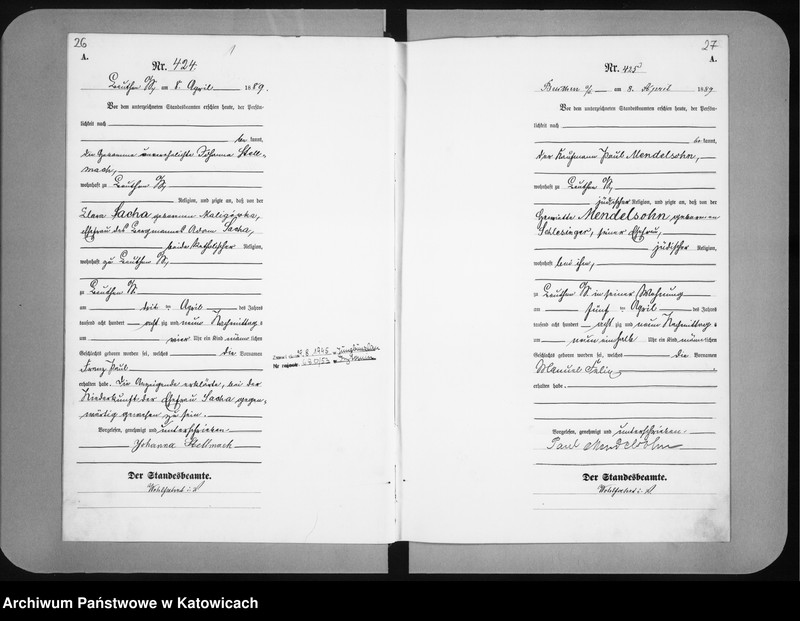 26
A.
Nr. 424
Beuthen O/S, am 8. April 1889.
Vor dem unterzeichneten Standesbeamten erschien heute, der Persön-
lichkeit nach
be kannt,
die Hebamme unverehelichte Johanna Stell-
mach,
wohnhaft zu Beuthen O/S,
Religion, und zeigte an, daß von der
Clara Sacha geborenen
Ehefrau des Bergmannes Adam Sacha,
beide katholischer Religion,
wohnhaft zu Beuthen O/S,
zu Beuthen O/S
am ten April des Jahres
tausend acht hundert acht zig und neun Nachmittag s
um vier Uhr ein Kind männ lichen
Geschlechts geboren worden sei, welches die Vornamen
Franz Paul
erhalten habe. Die Anzeigende erklärte, bei der
Niederkunft der Ehefrau Sacha gegen-
wärtig gewesen zu sein.
Vorgelesen, genehmigt und unterschrieben
Johanna Stellmach
Der Standesbeamte.
1945
27
A.
Nr. 425
Beuthen O/S am 8. April 1889
Vor dem unterzeichneten Standesbeamten erschien heute, der Persön-
lichkeit nach
be kannt,
der Kaufmann Paul Mendelsohn,
wohnhaft zu Beuthen O/S,
jüdischer Religion, und zeigte an, daß von der
Henriette Mendelsohn geborenen
Schlesinger, seiner Ehefrau,
jüdischer Religion,
wohnhaft bei ihm,
zu Beuthen O/S in seiner Wohnung
am fünf ten April des Jahres
tausend acht hundert acht zig und neun Nachmittag s
um neun einhalb Uhr ein Kind männ lichen
Geschlechts geboren worden sei, welches die Vornamen
Manuel Felix
erhalten habe.
Vorgelesen, genehmigt und unterschrieben
Paul Mendelsohn
Der Standesbeamte.
Archiwum Państwowe w Katowicach